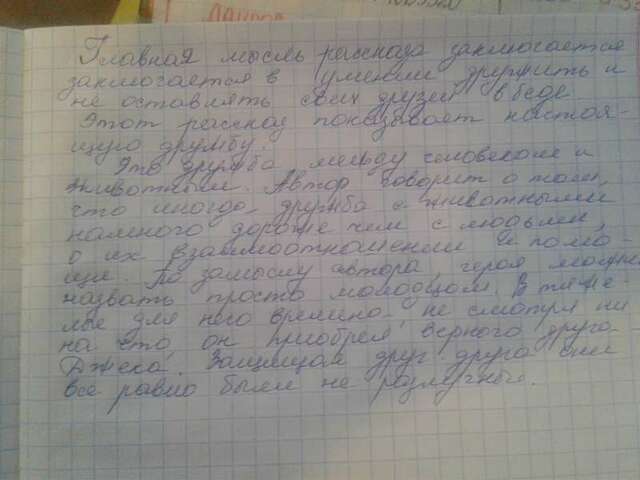 Главная мысль рассказа заключается
заключается в умении дружить и
не оставлять своих друзей в беде.
Этот рассказ показывает настоя-
щую дружбу.
Это дружба между человеком и
животным. Автор говорит о том,
что иногда дружба с животными
намного дороже чем с людьми,
о их взаимоотношении и помо-
щи. По замыслу автора, героя можно
назвать просто молодцом. В тяже-
лое для него времяно не смотря ни
на что он приобрел верного друга
Джека. Защищая друг друга они
все равно были не разлучны.